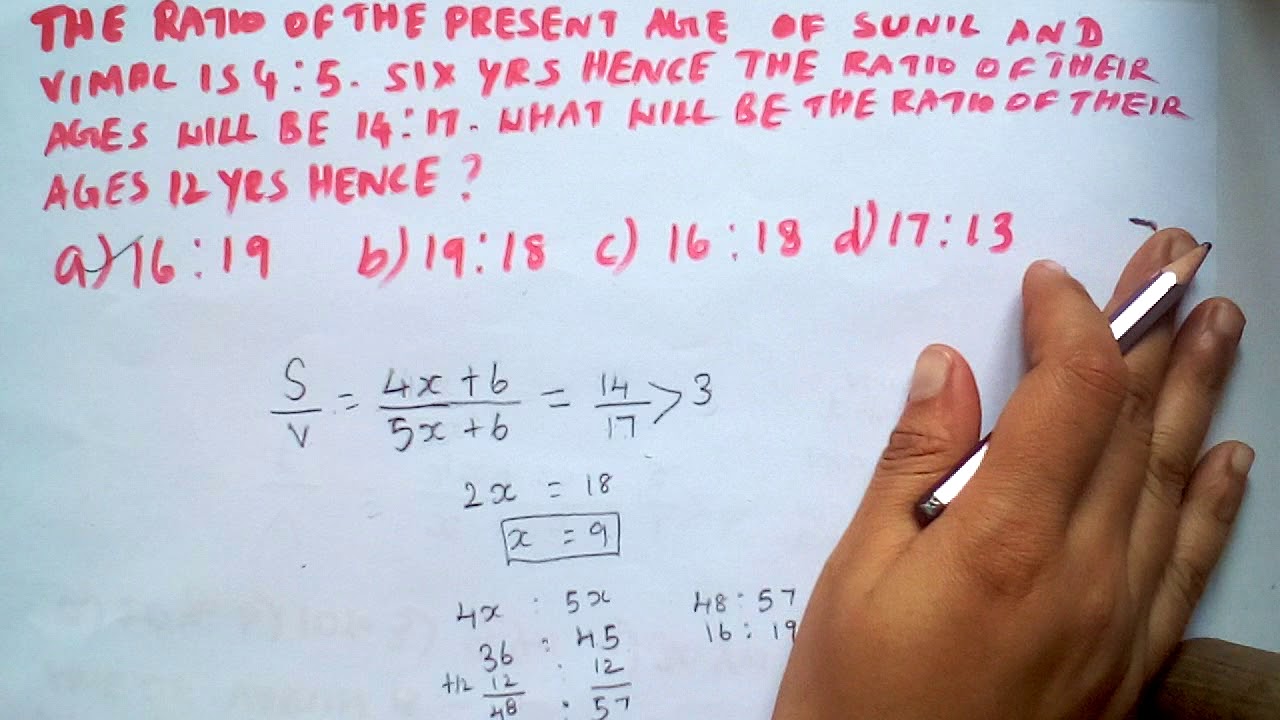 THE RATIO OF THE PRESENT AGE OF SUNIL AND
VIMAL IS 4:5. SIX YRS HENCE THE RATIO OF THEIR
AGES WILL BE 14:17. WHAT WILL BE THE RATIO OF THEIR
AGES 12 YRS HENCE?
a) 16:19 b) 19:18 c) 16:18 d) 17:13
S/V = 4x+6/5x+6 = 14/17 > 3
2x = 18
x = 9
4x : 5x 48:57
36 : 45 16:19
+12 12 : 12
48 : 57